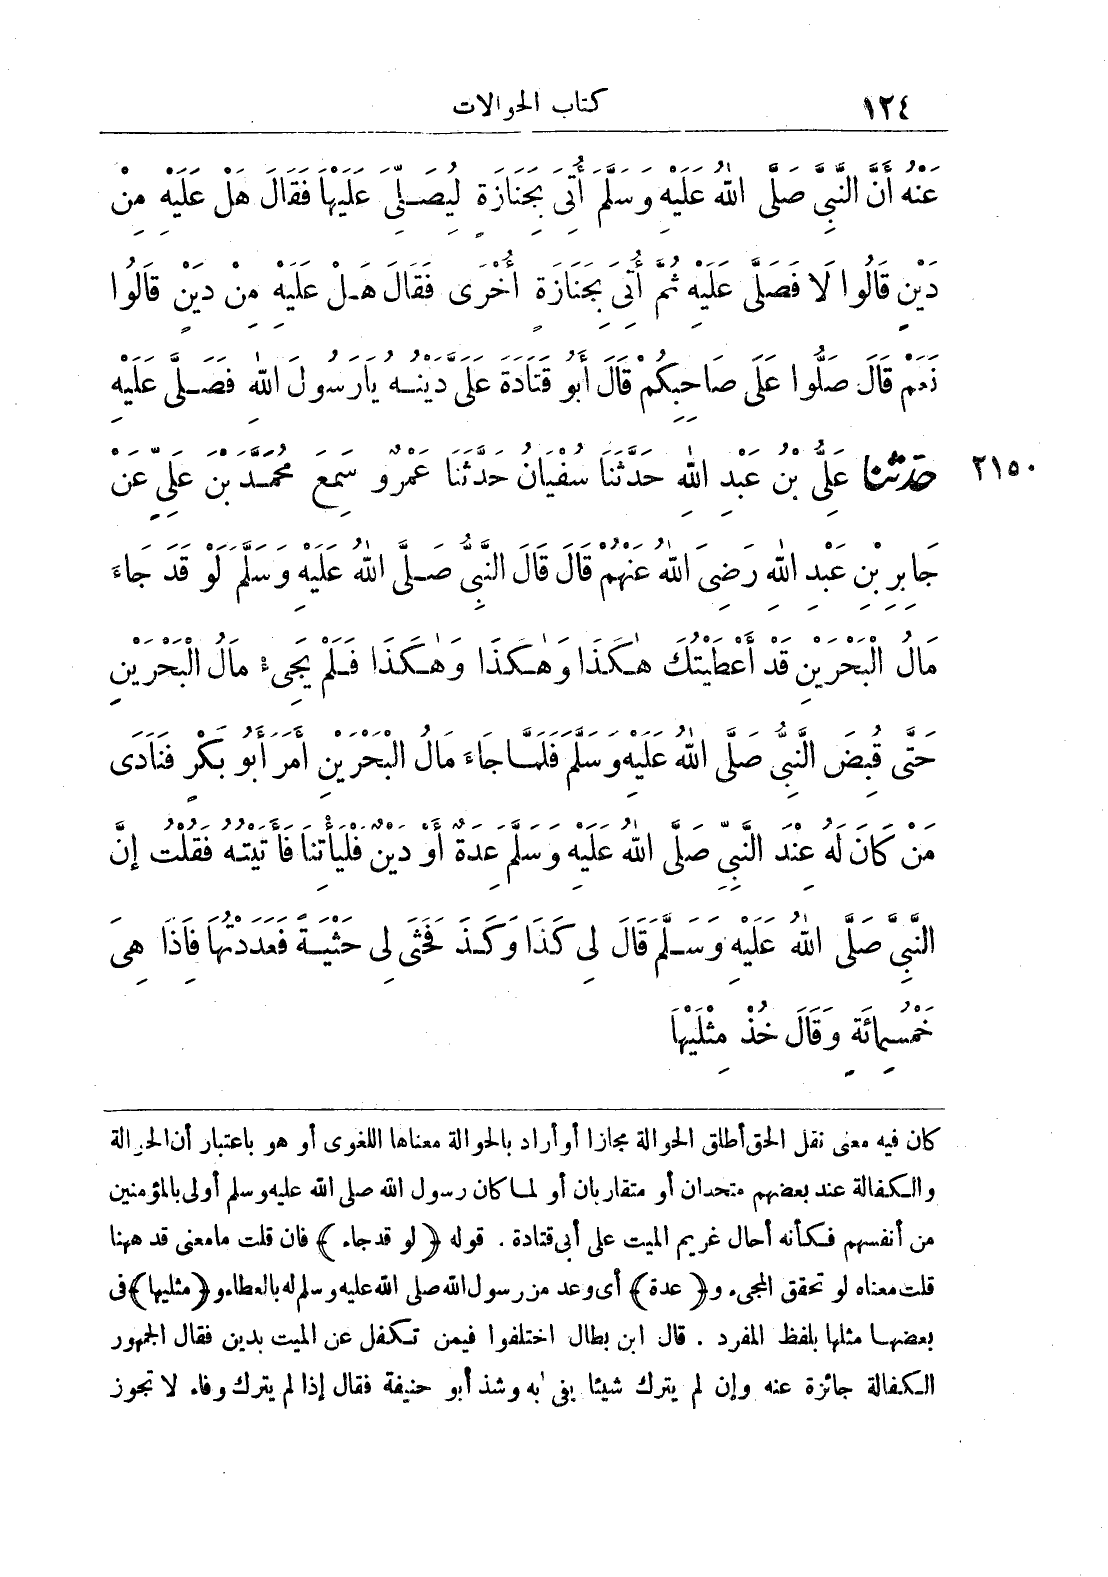 ١٢٤ كتاب الحوالات
عَنْهُ أَنَّ النَّبِىَّ صَلَّى اللهُ عَلَيْهِ وَسَلَّمَ أُتِىَ بِجَنَازَةٍ لِيُصَلِّىَ عَلَيْهَا فَقَالَ هَلْ عَلَيْهِ مِنْ
دَيْنٍ قَالُوا لَا فَصَلَّى عَلَيْهِ ثُمَّ أُتِىَ بِجَنَازَةٍ أُخْرَى فَقَالَ هَلْ عَلَيْهِ مِنْ دَيْنٍ قَالُوا
نَعَمْ قَالَ صَلُّوا عَلَى صَاحِبِكُمْ قَالَ أَبُو قَتَادَةَ عَلَىَّ دَيْنُهُ يَارَسُولَ اللهِ فَصَلَّى عَلَيْهِ
٢١٥٠ حَدَّثَنَا عَلِىُّ بْنُ عَبْدِ اللهِ حَدَّثَنَا سُفْيَانُ حَدَّثَنَا عَمْرٌو سَمِعَ مُحَمَّدَ بْنَ عَلِىٍّ عَنْ
جَابِرِ بْنِ عَبْدِ اللهِ رَضِىَ اللهُ عَنْهُمْ قَالَ قَالَ النَّبِىُّ صَلَّى اللهُ عَلَيْهِ وَسَلَّمَ لَوْ قَدْ جَاءَ
مَالُ الْبَحْرَيْنِ قَدْ أَعْطَيْتُكَ هٰكَذَا وَهٰكَذَا وَهٰكَذَا فَلَمْ يَجِىْء مَالُ الْبَحْرَيْنِ
حَتَّى قُبِضَ النَّبِىُّ صَلَّى اللهُ عَلَيْهِ وَسَلَّمَ فَلَمَّا جَاءَ مَالُ الْبَحْرَيْنِ أَمَرَ أَبُو بَكْرٍ فَنَادَى
مَنْ كَانَ لَهُ عِنْدَ النَّبِىِّ صَلَّى اللهُ عَلَيْهِ وَسَلَّمَ عِدَةٌ أَوْ دَيْنٌ فَلْيَأْتِنَا فَأَتَيْتُهُ فَقُلْتُ إِنَّ
النَّبِىَّ صَلَّى اللهُ عَلَيْهِ وَسَلَّمَ قَالَ لِى كَذَا وَكَذَ فَحَثَى لِى حَثْيَةً فَعَدَدْتُهَا فَإِذَا هِىَ
خَمْسُمِائَةٍ وَقَالَ خُذْ مِثْلَيْهَا
كان فيه معنى نقل الحق أطلق الحوالة مجازا أو أراد بالحوالة معناها اللغوى أو هو باعتبار أن الحوالة
والكفالة عند بعضهم متحدان أو متقاربان أو لما كان رسول الله صلى الله عليه وسلم أولى بالمؤمنين
من أنفسهم فكأنه أحال غريم الميت على أبى قتادة . قوله ﴿ لو قد جاء ﴾ فان قلت ما معنى قد ههنا
قلت معناه لو تحقق المجىء و﴿ عدة ﴾ أى وعد من رسول الله صلى الله عليه وسلم له بالعطاء و﴿ مثليها ﴾ فى
بعضها مثلها بلفظ المفرد . قال ابن بطال اختلفوا فيمن تكفل عن الميت بدين فقال الجمهور
الكفالة جائزة عنه وإن لم يترك شيئا يفى به وشذ أبو حنيفة فقال إذا لم يترك وفاء لا تجوز